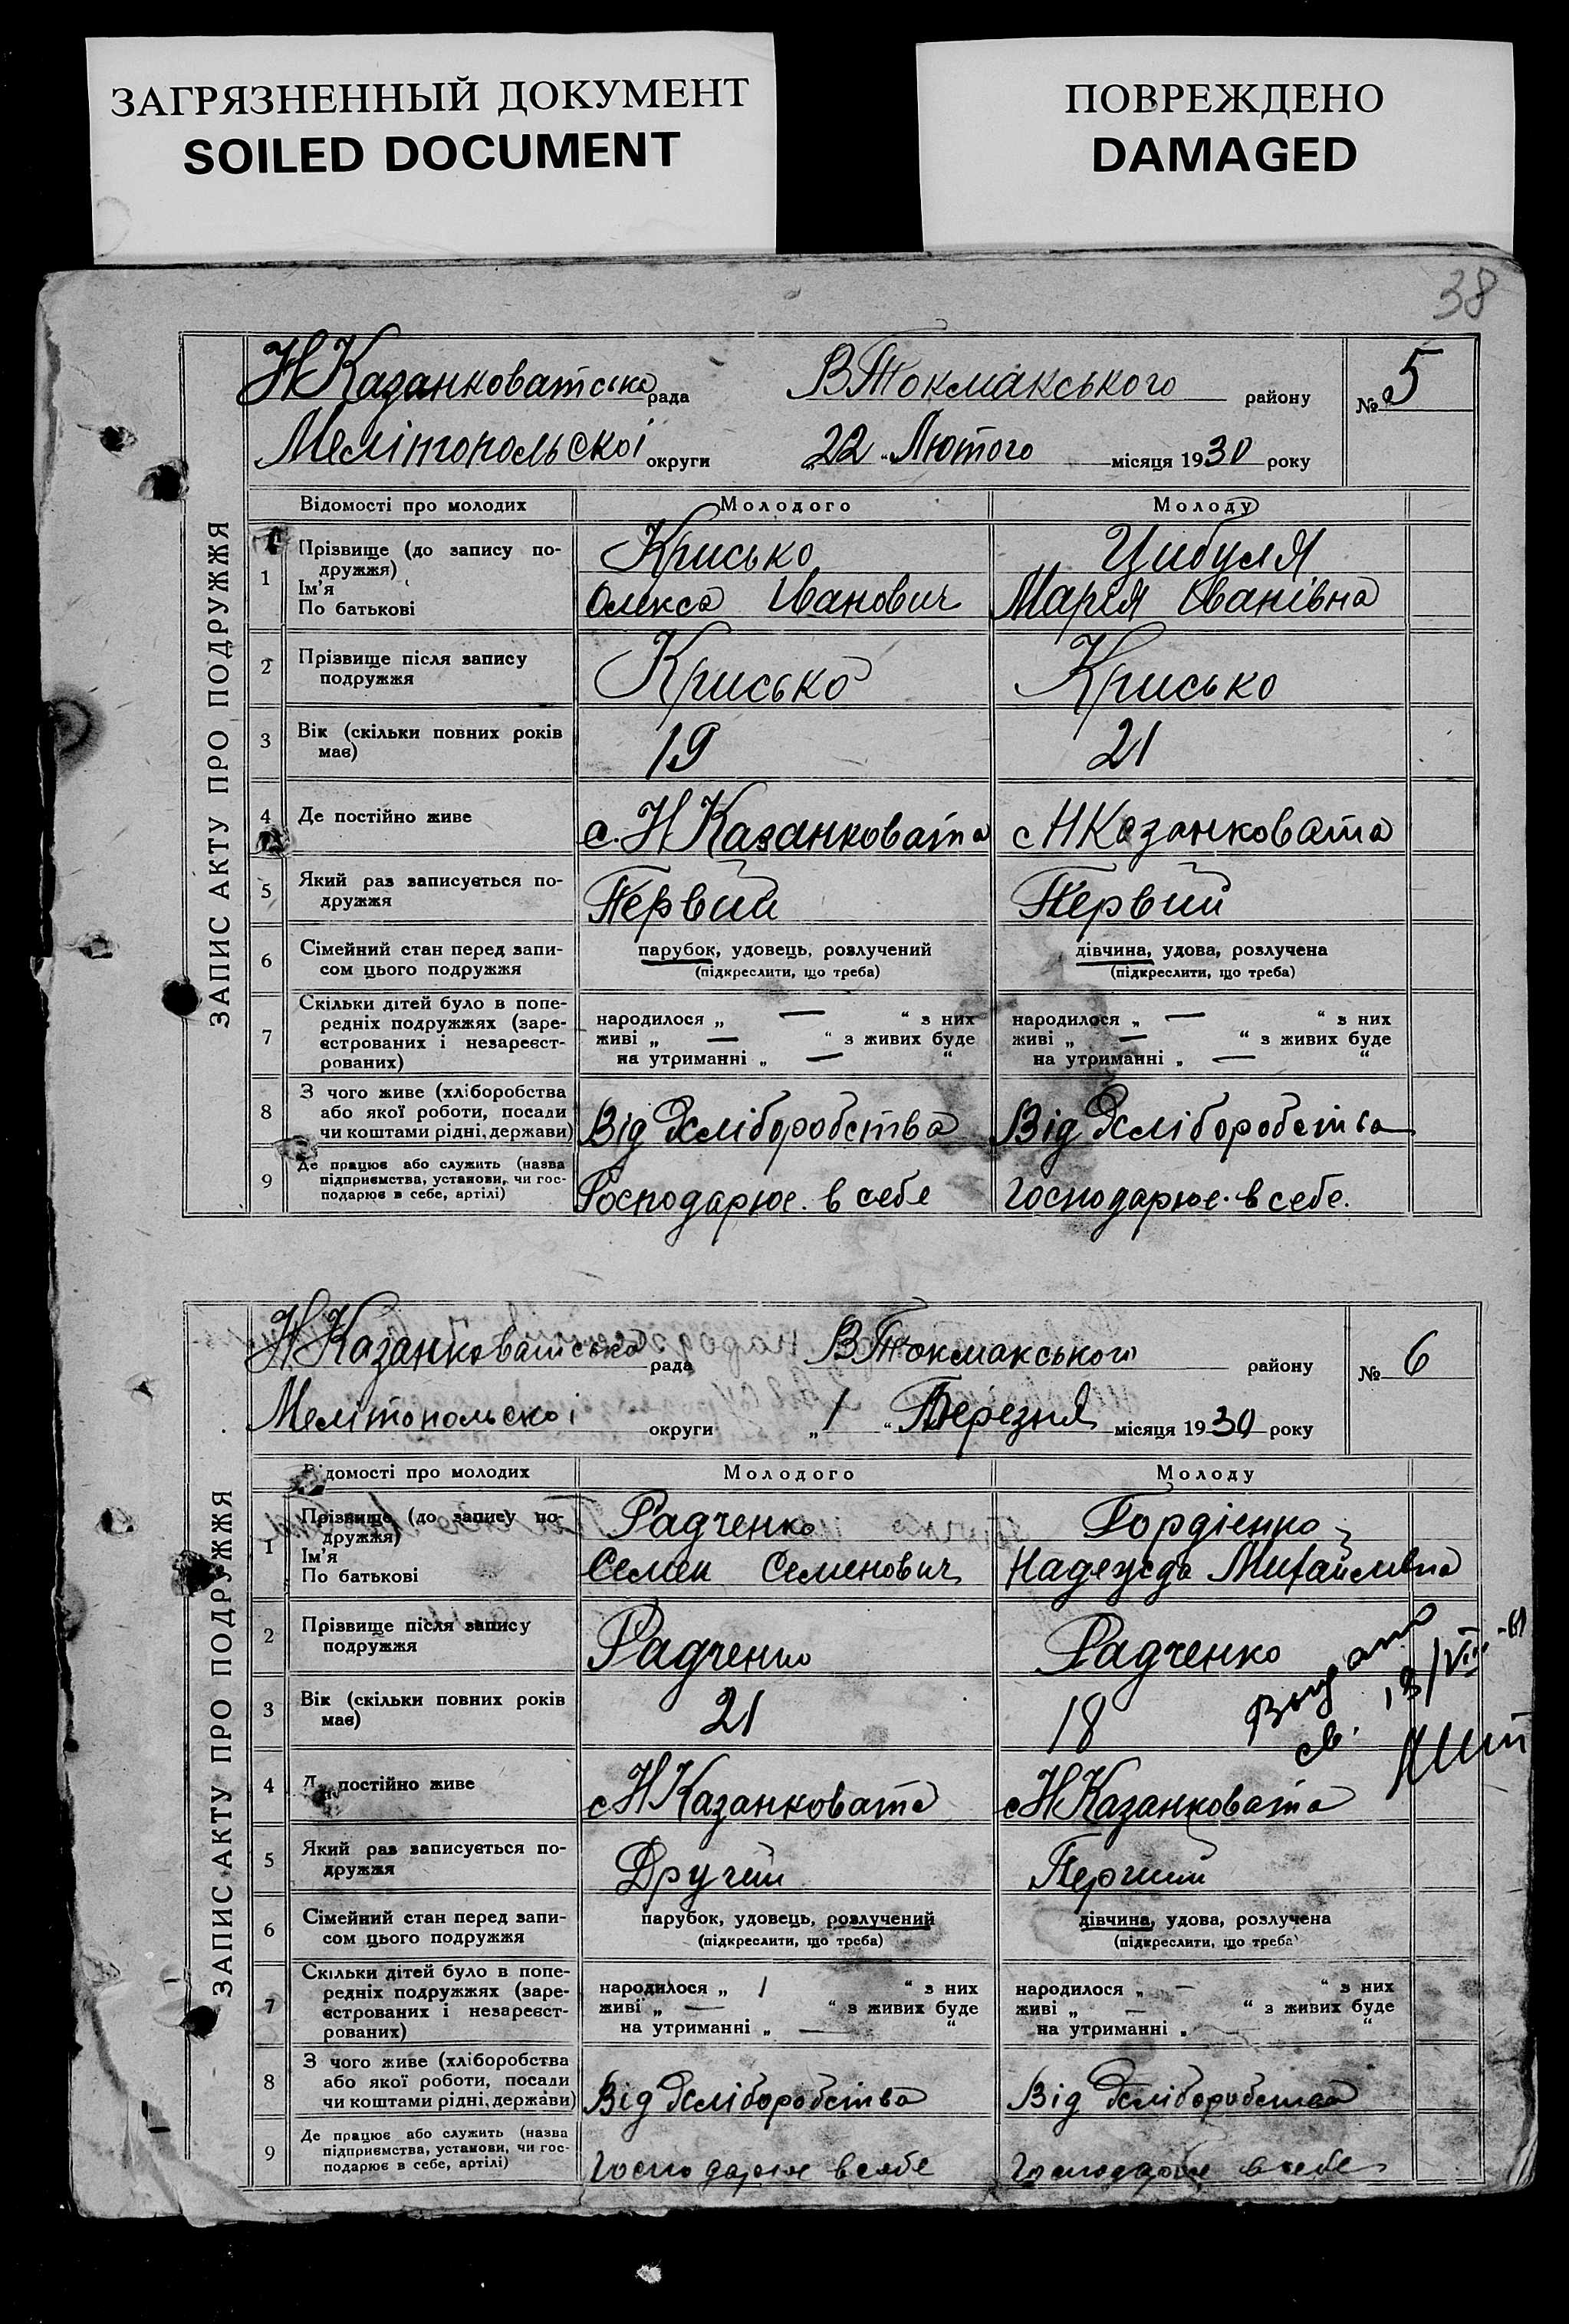 ЗАГРЯЗНЕННЫЙ ДОКУМЕНТ
SOILED DOCUMENT
ПОВРЕЖДЕНО
DAMAGED
38
ЗАПИС АКТУ ПРО ПОДРУЖЖЯ
Н Казанковатська рада В Токмакського району № 5
Мелітопольскоі округи „22“ Лютого місяця 1930 року
Відомості про молодих Молодого Молоду
1 Прізвище (до запису по- Крисько Цибуля
дружжя)
Ім'я Олекса Іванович Марія Іванівна
По батькові
2 Прізвище після запису Крисько Крисько
подружжя
3 Вік (скільки повних років 19 21
має)
4 Де постійно живе с. Н Казанковата с Н Казанковата
5 Який раз записується по- Первий Первий
дружжя
6 Сімейний стан перед запи- парубок, удовець, розлучений дівчина, удова, розлучена
сом цього подружжя (підкреслити, що треба) (підкреслити, що треба)
7 Скільки дітей було в попе-
редніх подружжях (заре- народилося „ — “ з них народилося „ — “ з них
єстрованих і незареєст- живі „ — “ з живих буде живі „ — “ з живих буде
рованих) на утриманні „ — “ на утриманні „ — “
8 З чого живе (хліборобства
або якої роботи, посади Від хліборобства Від хліборобства
чи коштами рідні, держави)
9 Де працює або служить (назва
підприємства, установи, чи гос- Господарює. в себе Господарює. в себе.
подарює в себе, артілі)
ЗАПИС АКТУ ПРО ПОДРУЖЖЯ
Н Казанковатська рада В Токмакського району № 6
Мелітопольскоі округи „1“ Березня місяця 1930 року
Відомості про молодих Молодого Молоду
1 Прізвище (до запису по- Радченко Гордіенко
дружжя)
Ім'я Семен Семенович Надежда Михайливна
По батькові
2 Прізвище після запису Радченко Радченко
подружжя
Выдано
св. 13/VII
3 Вік (скільки повних років 21 18
має)
4 Де постійно живе с Н Казанковата с Н Казанковата
5 Який раз записується по- Другий Перший
дружжя
6 Сімейний стан перед запи- парубок, удовець, розлучений дівчина, удова, розлучена
сом цього подружжя (підкреслити, що треба) (підкреслити, що треба)
7 Скільки дітей було в попе-
редніх подружжях (заре- народилося „ 1 “ з них народилося „ — “ з них
єстрованих і незареєст- живі „ — “ з живих буде живі „ — “ з живих буде
рованих) на утриманні „ — “ на утриманні „ — “
8 З чого живе (хліборобства
або якої роботи, посади Від хліборобства Від хліборобства
чи коштами рідні, держави)
9 Де працює або служить (назва
підприємства, установи, чи гос- Господарює в себе Господарює в себе
подарює в себе, артілі)